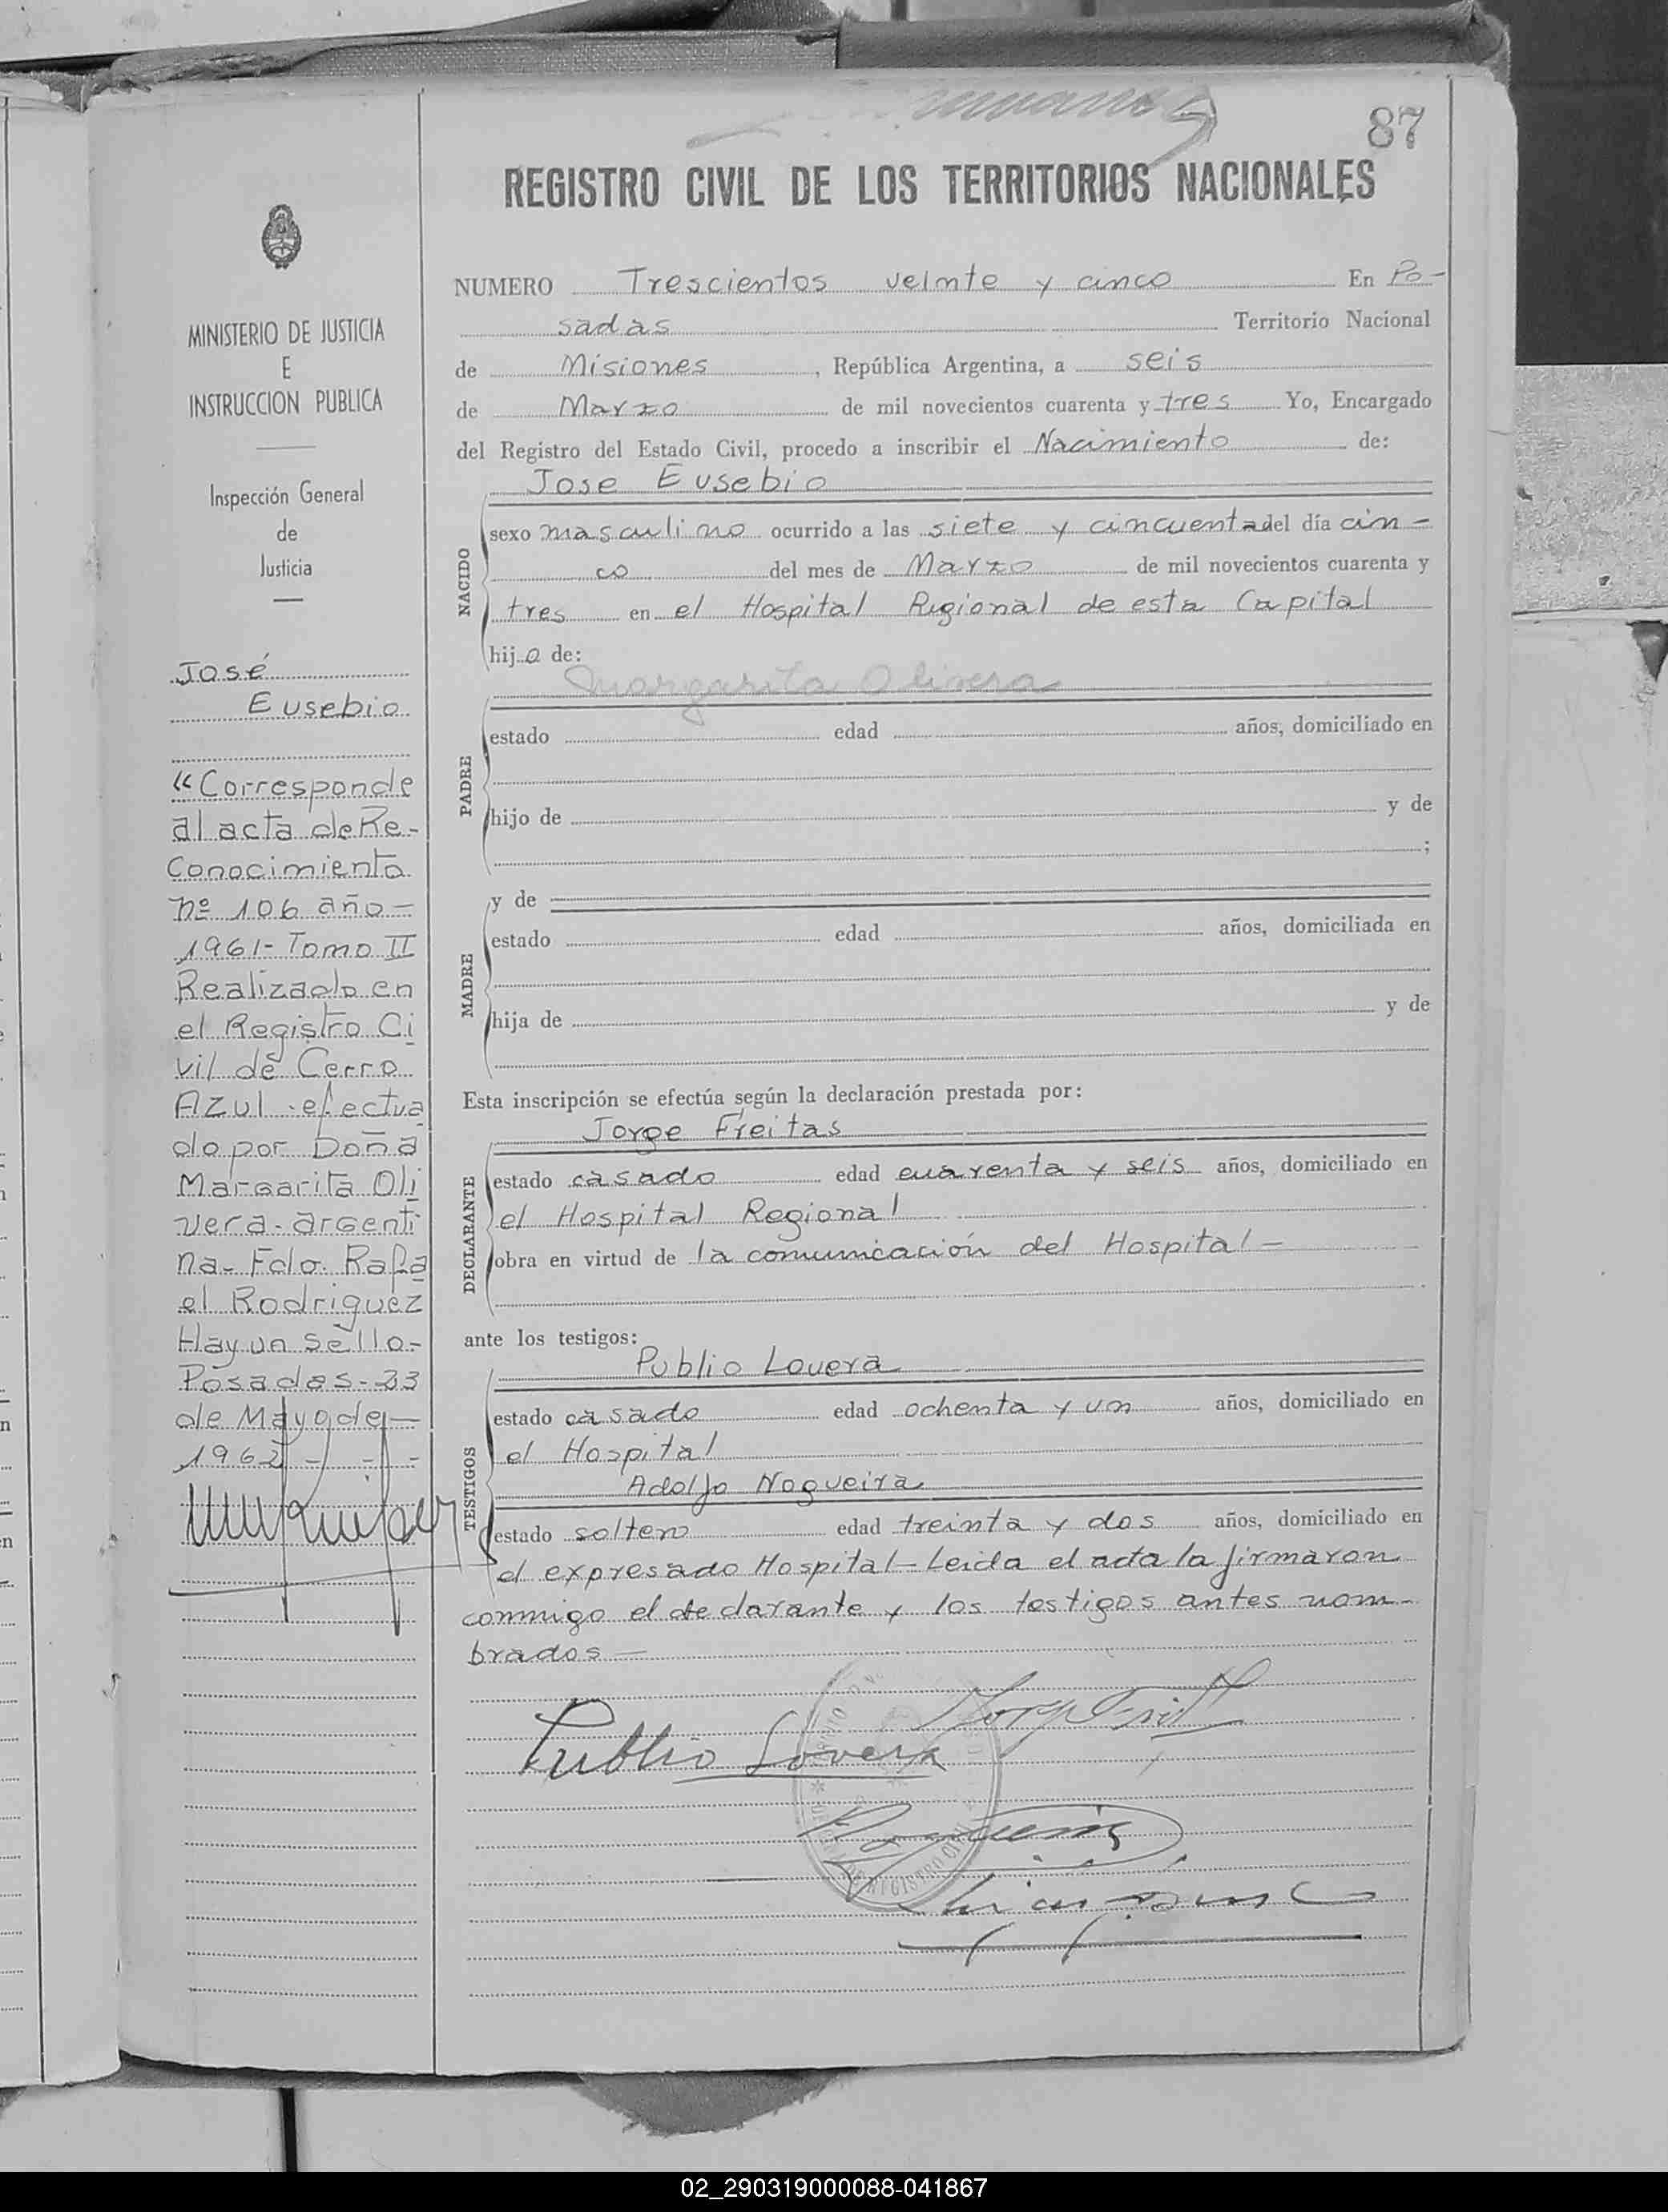 87
REGISTRO CIVIL DE LOS TERRITORIOS NACIONALES
MINISTERIO DE JUSTICIA
E
INSTRUCCION PUBLICA
Inspección General
de
Justicia
José
Eusebio
"Corresponde
al acta de Re-
conocimiento
nº 106 año-
1961- Tomo II
Realizado en
el Registro Ci
vil de Cerro
Azul efectua
do por Doña
Margarita Oli
vera-argenti
na- Fdo. Rafa
el Rodriguez
Hay un sello-
Posadas-23
de Mayo de-
1962 - - -
NUMERO Trescientos veinte y cinco En Po-
sadas Territorio Nacional
de Misiones, República Argentina, a seis
de Marzo de mil novecientos cuarenta y tres Yo, Encargado
del Registro del Estado Civil, procedo a inscribir el Nacimiento de:
Jose Eusebio
NACIDO
sexo masculino ocurrido a las siete y cincuenta del día cin-
co del mes de Marzo de mil novecientos cuarenta y
tres en el Hospital Regional de esta Capital
hijo de:
Margarita Olivera
PADRE
estado edad años, domiciliado en
hijo de y de
;
y de
MADRE
estado edad años, domiciliada en
hija de y de
Esta inscripción se efectúa según la declaración prestada por:
Jorge Freitas
DECLARANTE
estado casado edad cuarenta y seis años, domiciliado en
el Hospital Regional
obra en virtud de la comunicación del Hospital-
ante los testigos:
Publio Lovera
TESTIGOS
estado casado edad ochenta y un años, domiciliado en
el Hospital
Adolfo Nogueira
estado soltero edad treinta y dos años, domiciliado en
el expresado Hospital-Leida el acta la firmaron
conmigo el declarante y los testigos antes nom-
brados-
Publio Lovera
02_290319000088-041867